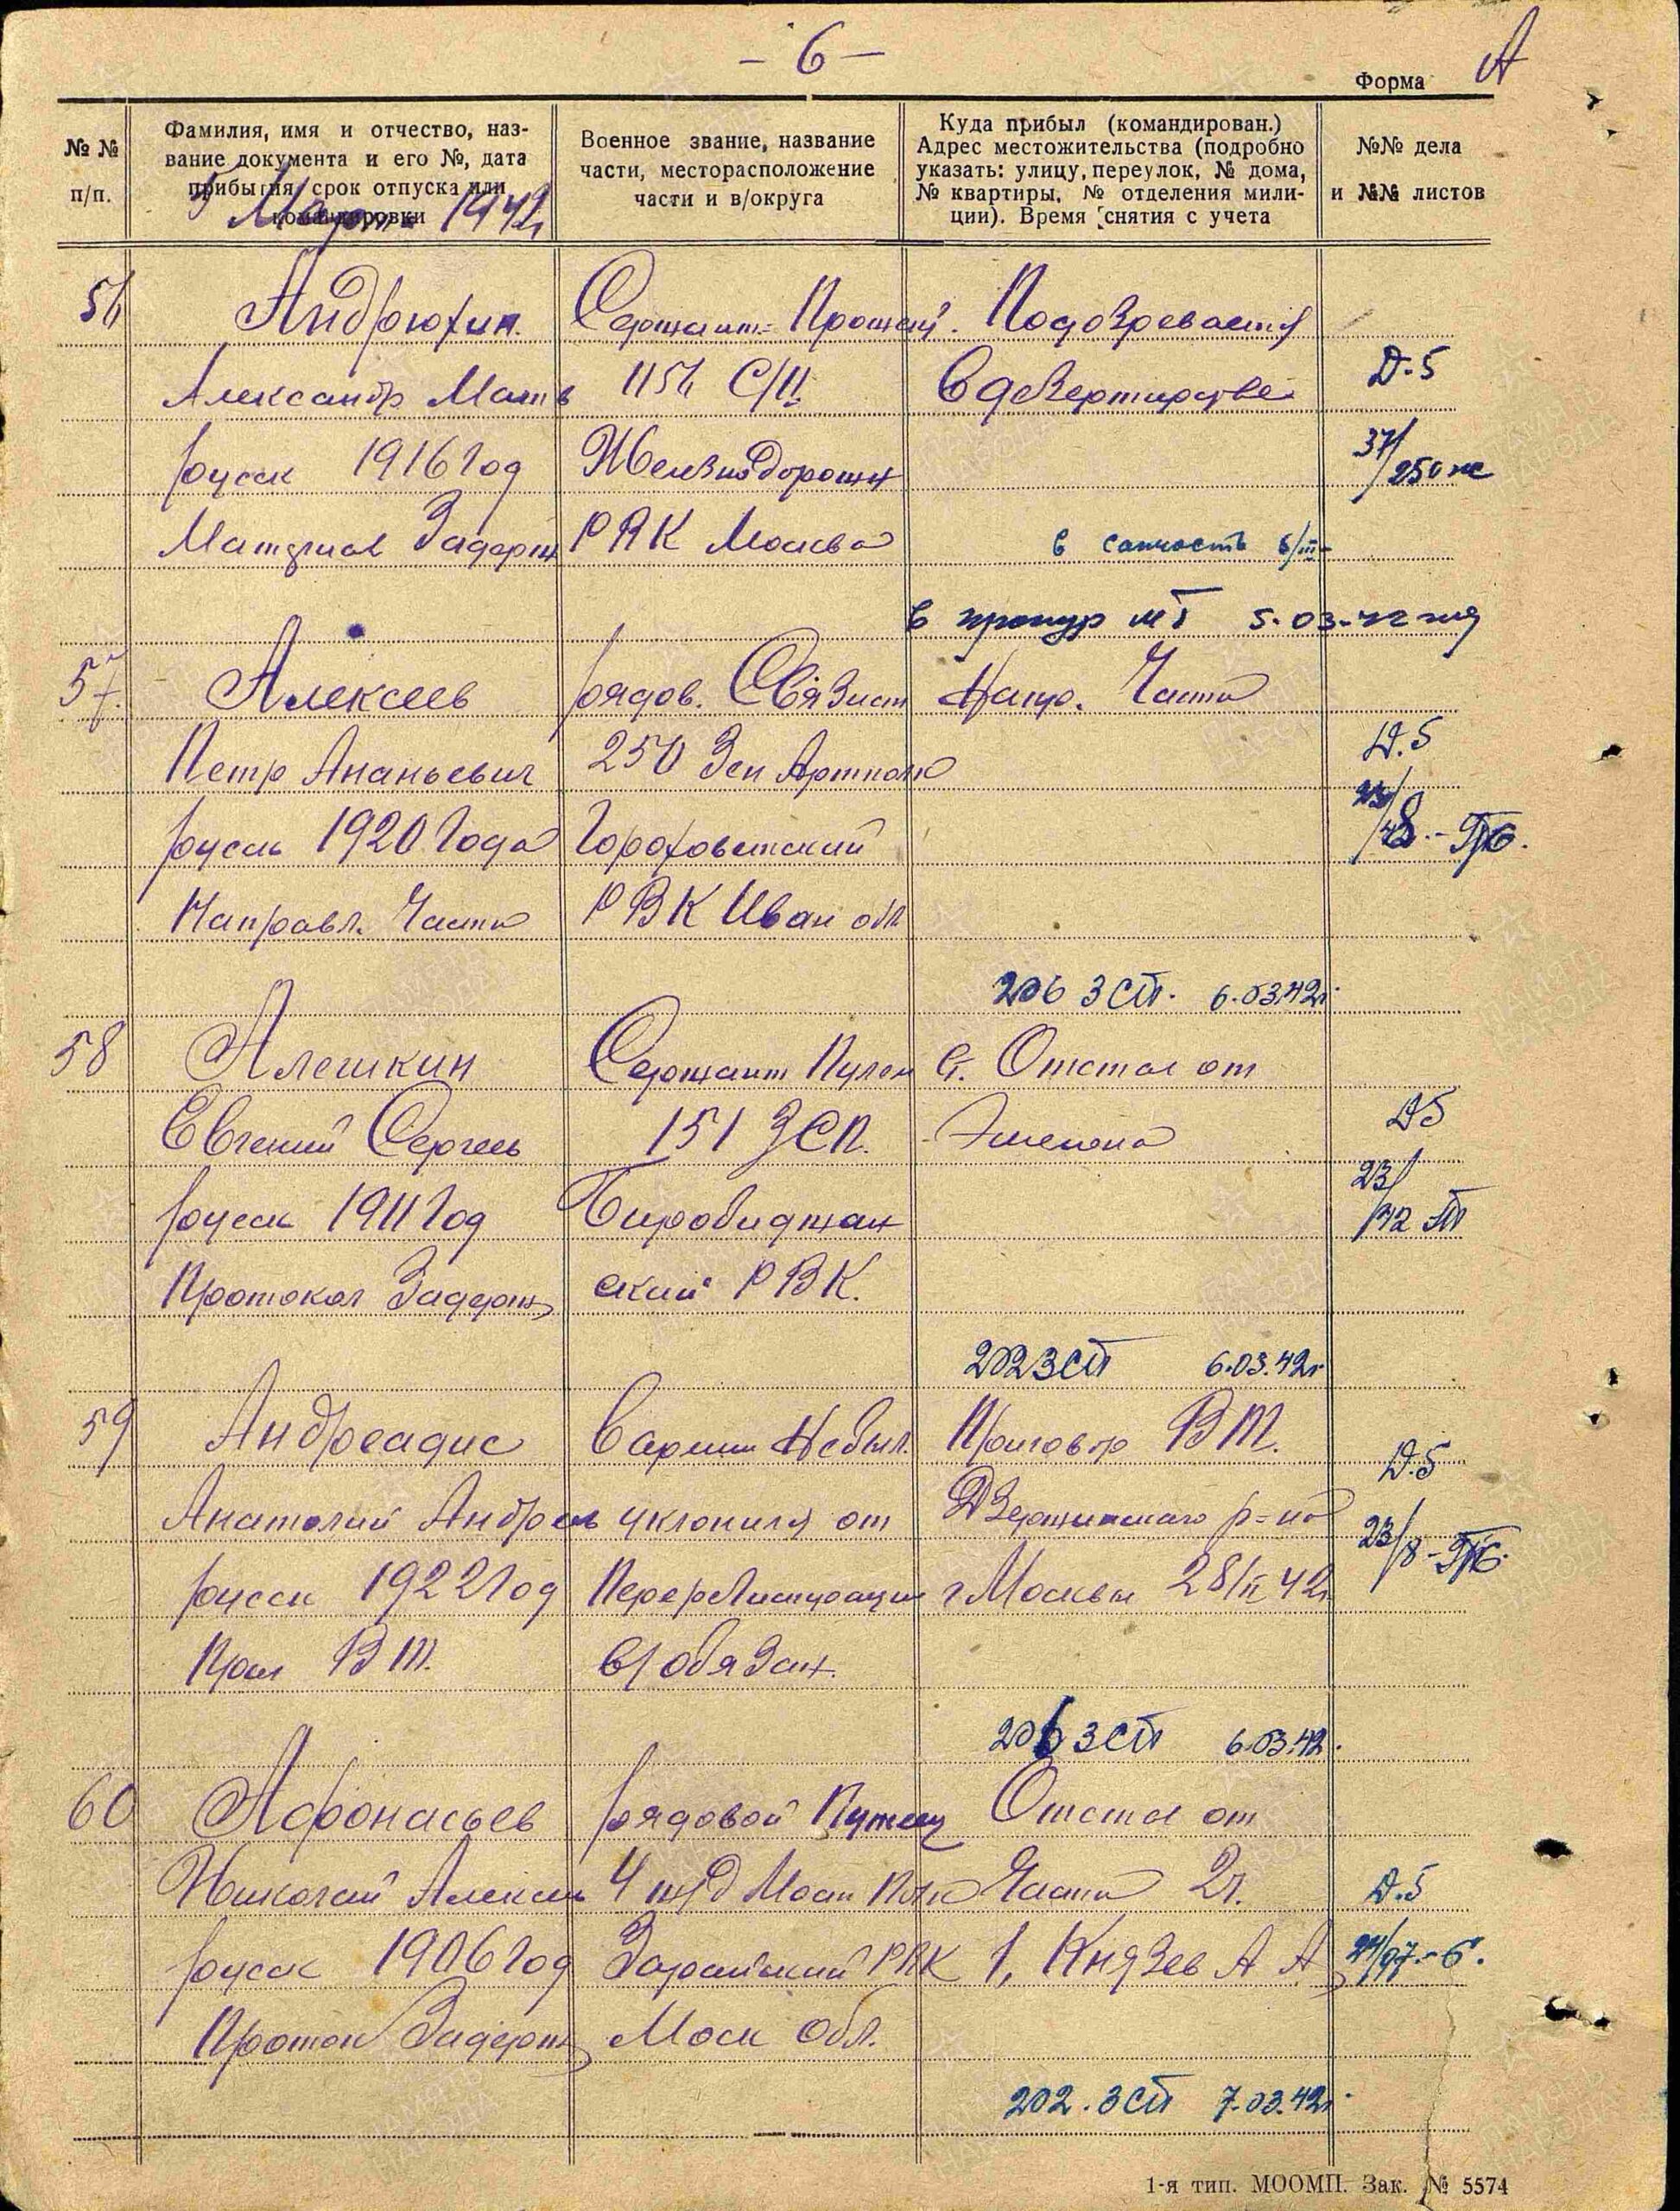 - 6 -
А
Форма
№ № п/п.
Фамилия, имя и отчество, наз-
вание документа и его №, дата
прибытия, срок отпуска или
командировки
5 Марта 1942г
Военное звание, название
части, месторасположение
части и в/округа
Куда прибыл (командирован.)
Адрес местожительства (подробно
указать: улицу, переулок, № дома,
№ квартиры, № отделения мили-
ции). Время снятия с учета
№№ дела
и №№ листов
56 Андрюхин Сержант Подозревается
Александр Матв 1156 С/П в дезертирстве Д.5
русск 1916 год Железнодорожн 37/250
Материал Задерж РВК Москва в санчасть 6/III
в прокур МГ 5.03.42
57. Алексеев рядов. Связист Напр. Части
Петр Ананьевич 250 Зен Артполк Д.5
русск 1920 года Гороховетский
Направл. Части РВК Иван обл
206 ЗСП. 6.03.42г.
58 Алешкин Сержант Пулем Отстал от
Евгений Сергеев 151 ЗСП. Эшелона Д5
русск 1911 год Биробиджан 23/42
Протокол Задерж ский РВК.
202 ЗСП 6.03.42г
59 Андреадис В армии Не был. Приговор ВТ.
Анатолий Андреев уклонился от Дзержинского р-на Д.5
русск 1922 год Перерегистрации г Москвы 28/II 42г. 23/8
ВТ. в/обязан.
206 ЗСП 6.03.42.
60 Афонасьев рядовой Отстал от
Николай Алексеев 4 Моск Полк Части 2г. Д.5
русск 1906 год Зарайский РВК 1, Князев А А
Проток Задерж Моск Обл.
202. ЗСП 7.03.42г.
1-я тип. МООМП. Зак. № 5574